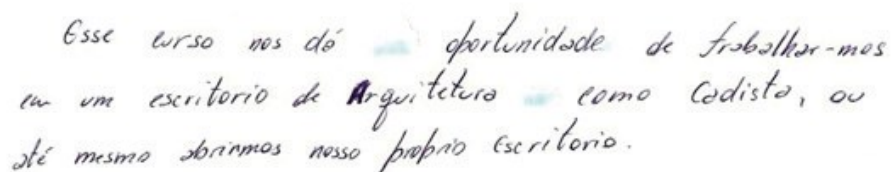 Esse curso nos dá oportunidade de trabalhar-mos
em um escritorio de Arquitetura como Cadista, ou
até mesmo abrirmos nosso proprio Escritorio.